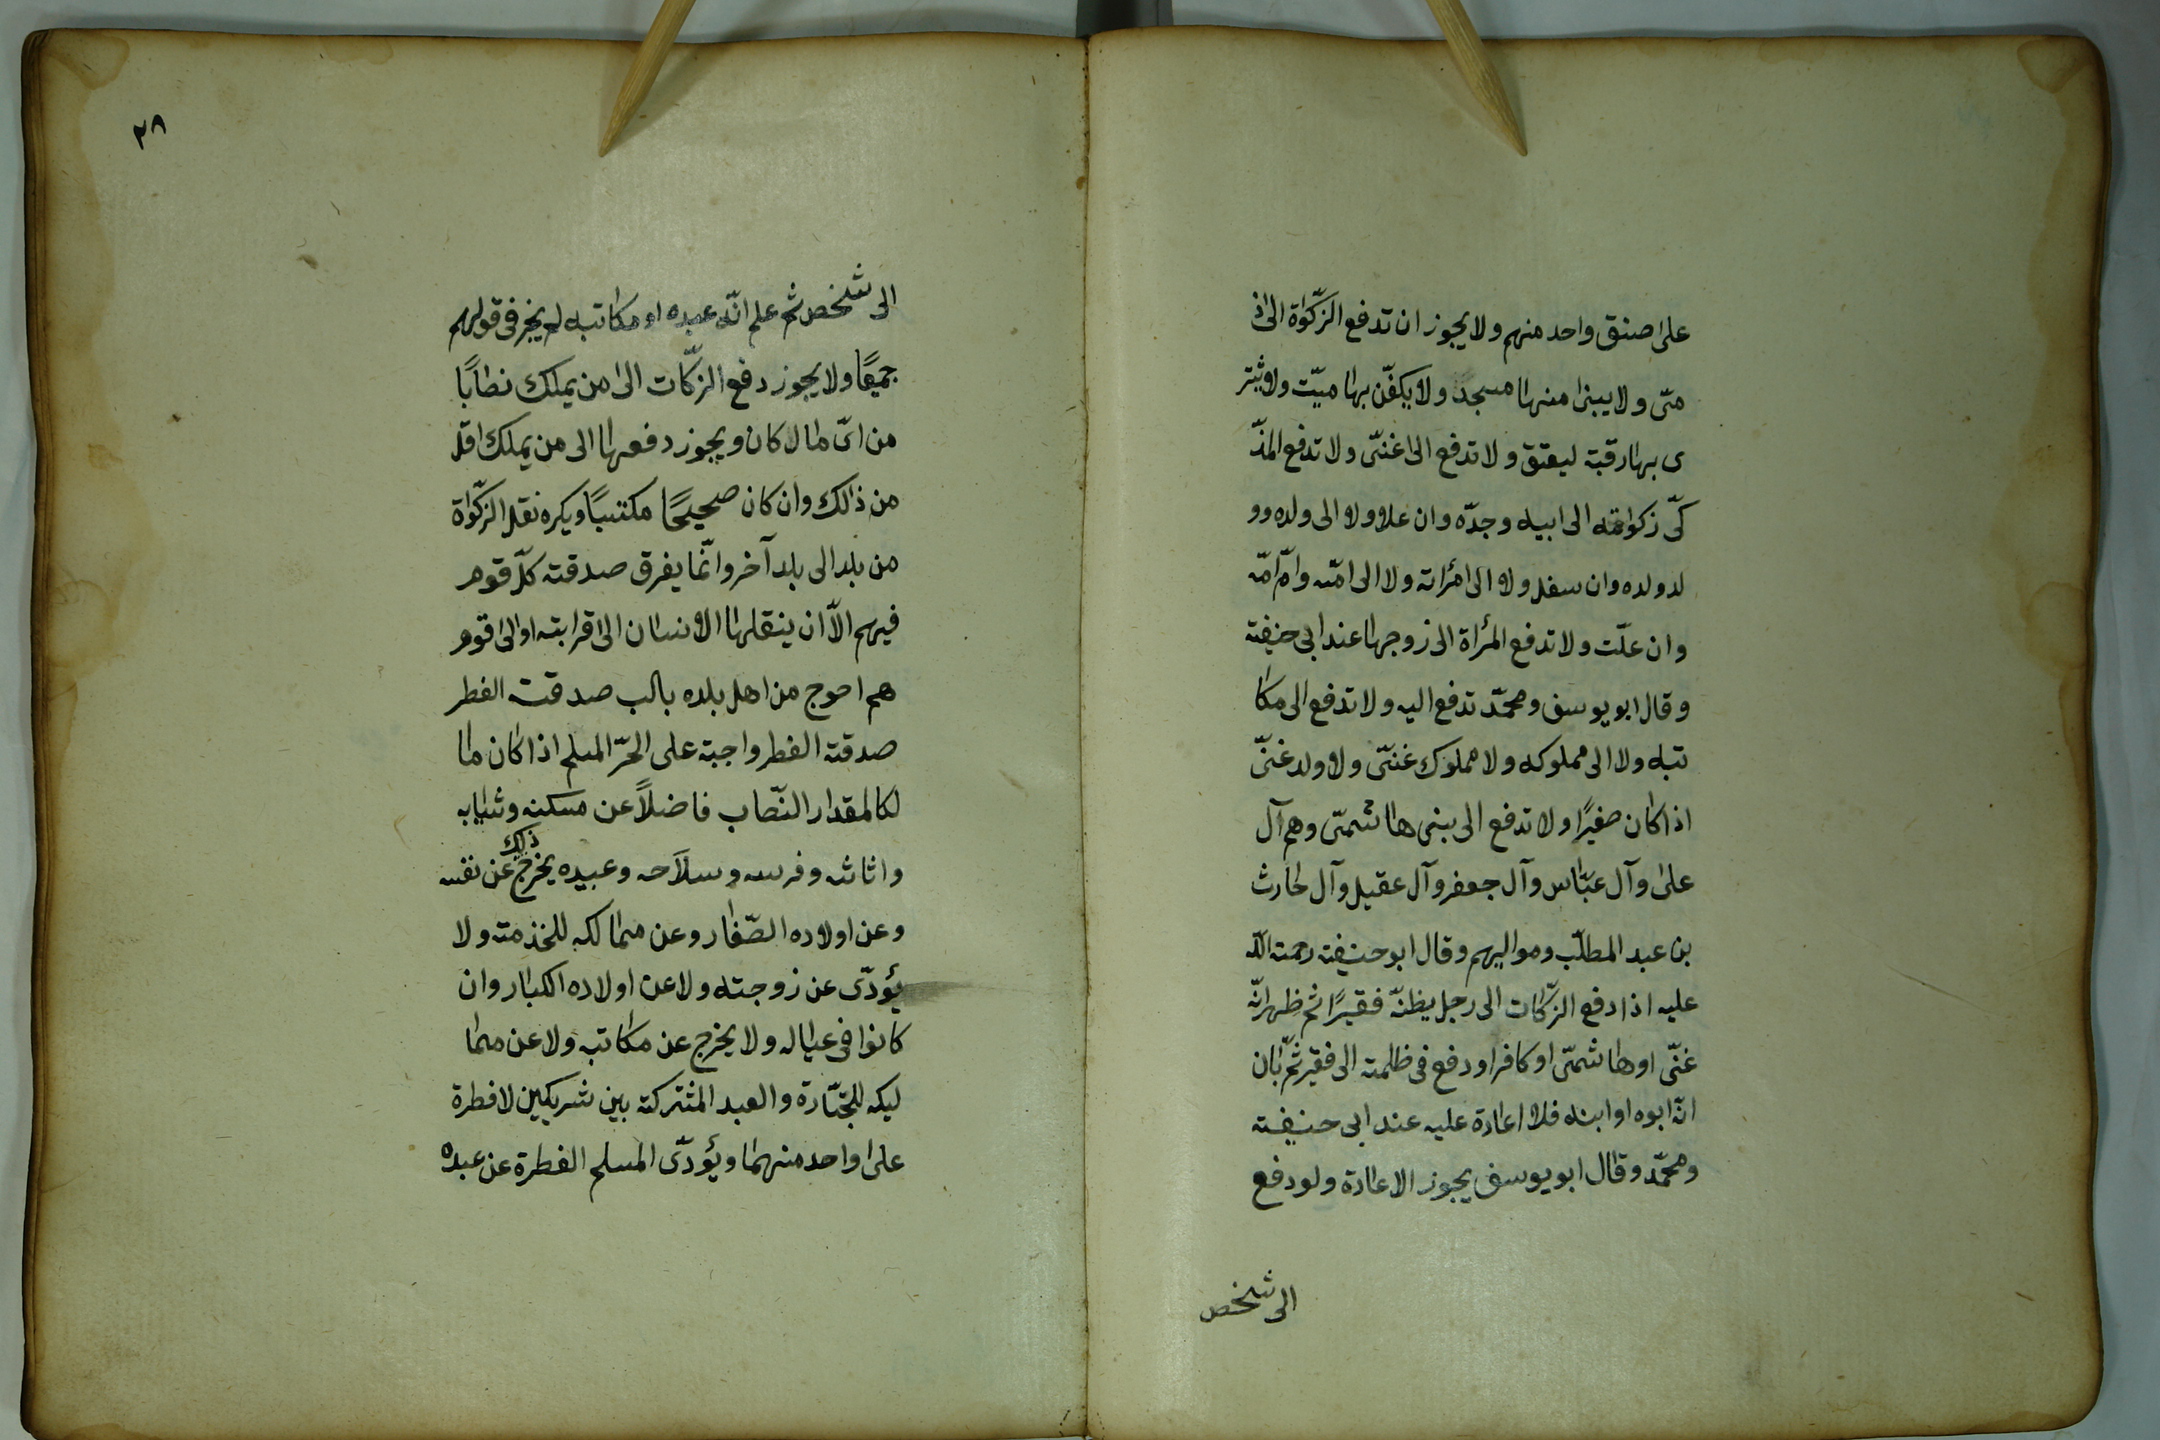 على صنق واحد منهم ولا يجوز ان تدفع الزّكوٰة الى ذ
متى ولا يبنٰى منهٰا مسجدً ولا يكفّن بهٰا ميّت ولا يثتر
ى بهٰا رقبة ليعتق ولا تدفع الى غنىّ ولا تدفع المذّ
كّى زكوٰته الى ابيه وجدّه وان علا ولا الى ولده وو
لد ولده وان سفل ولا الى امرٔاته ولا الى امّه وامّ امّه
وان علّت ولا تدفع المرٔاة الى زوجهٰا عند ابى حنيفة
وقال ابو يوسف ومحمّد تدفع اليه ولا تدفع الى مكٰا
تبه ولا الى مملوكه ولا مملوك غنىّ ولا ولد غنىّ
اذا كٰان صغيرًا ولا تدفع الى بنى هٰاشمىّ وهم آل
على وآل عبّٰاس وآل جعفر وآل عقيل وآل حٰارث
بن عبد المطلّب ومواليهم وقال ابو حنيفة رحمة اللّه
عليه اذا دفع الزّكٰات الى رجل يظنّه فقيرًا ثم ظهر انّه
غنىّ او هٰاشمىّ او كافر او دفع فى ظلمة الى فقير ثمّ بٰان
انّه ابوه او ابنه فلا اعٰادة عليه عند ابى حنيفة
ومحمّد وقٰال ابو يوسف يجوز الاعٰادة ولو دفع
الى شخص
٢٨
الى شخص ثم علم انّه عبده او مكٰاتبه لم يجز فى قولهم
جميعًا ولا يجوز دفع الزّكٰات الى من يملك نصٰابًا
من اىّ مٰال كان ويجوز دفعهٰا الى من يملك اقل
من ذٰلك وان كان صحيحًا مكتسبًا ويكره نقل الزّكوٰة
من بلد الى بلد آخر وانّما يفرق صدقة كلّ قوم
فيهم الاّ ان ينقلهٰا الانسٰان الى قرابته او الى قوم
هم احوج من اهل بلده بٰاب صدقت الفطر
صدقة الفطر واجبة على الحرّ المسلم اذا كٰان مٰا
لكا لمقدار النّصٰاب فاضلاً عن مسكنه وثيٰابه
واثاثه وفرسه وسلاحه وعبيده يخرج ذلك عن نفسه
وعن اولاده الصّغٰار وعن ممٰا لكه للخدمة ولا
يؤدّى عن زوجته ولا عن اولاده الكبٰار وان
كانوا فى عيٰاله ولا يخرج عن مكٰاتبه ولا عن ممٰا
ليكه للتجّٰارة والعبد المثتركة بين شريكين لا فطرة
على واحد منهمٰا ويؤدّى المسلم الفطرة عن عبده